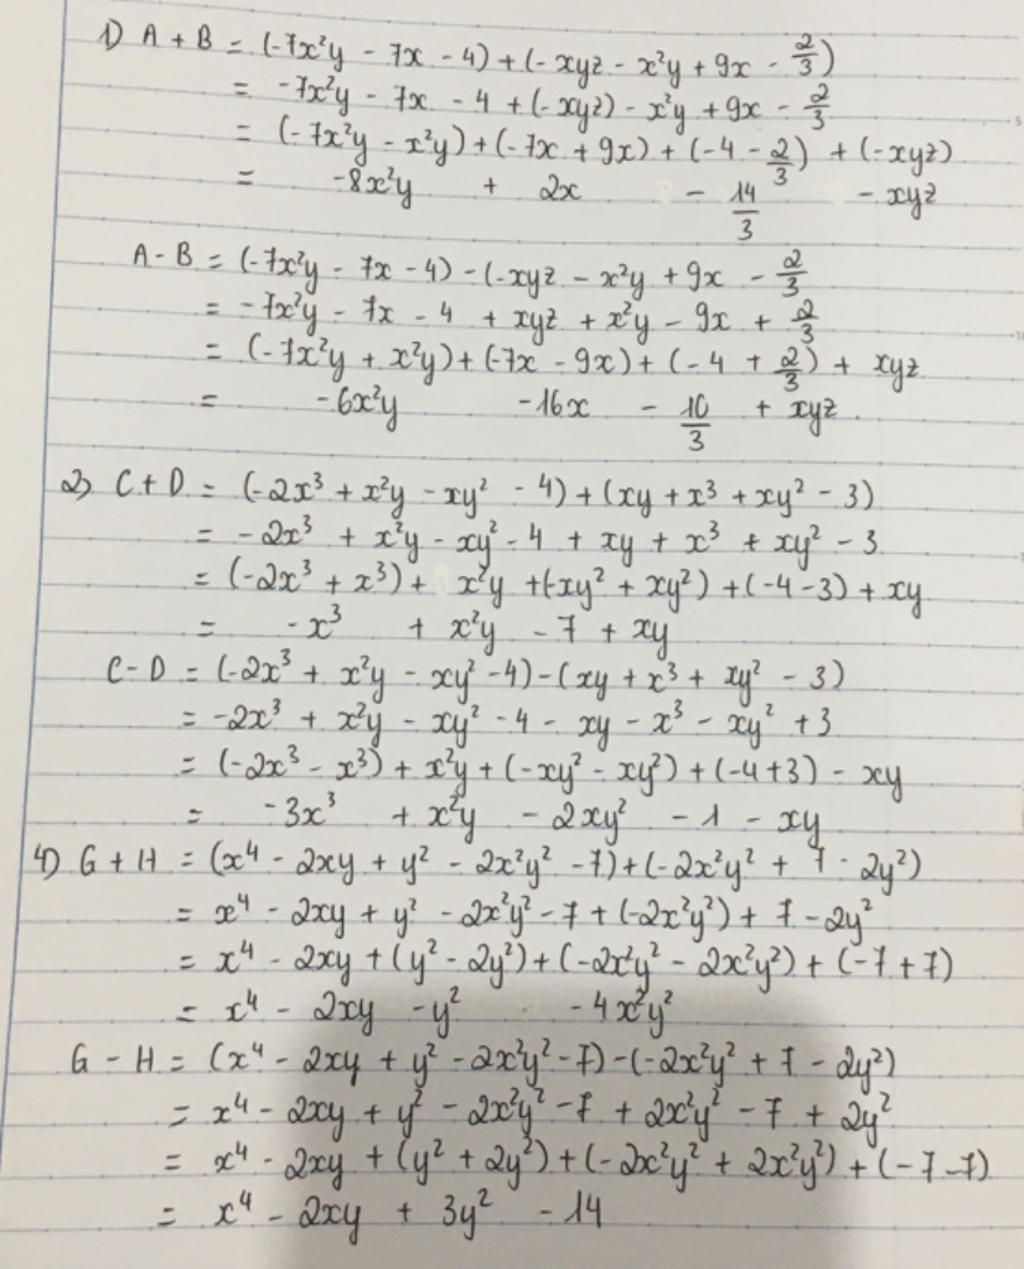 1) A + B = (-7x²y - 7x - 4) + (- xyz - x²y + 9x - 2/3)
= -7x²y - 7x - 4 + (- xyz) - x²y + 9x - 2/3
= (-7x²y - x²y) + (-7x + 9x) + (-4 - 2/3) + (-xyz)
= -8x²y + 2x - 14/3 - xyz
A - B = (-7x²y - 7x - 4) - (-xyz - x²y + 9x - 2/3
= -7x²y - 7x - 4 + xyz + x²y - 9x + 2/3
= (-7x²y + x²y) + (-7x - 9x) + (-4 + 2/3) + xyz
= -6x²y -16x - 10/3 + xyz
2) C + D = (-2x³ + x²y - xy² - 4) + (xy + x³ + xy² - 3)
= -2x³ + x²y - xy² - 4 + xy + x³ + xy² - 3
= (-2x³ + x³) + x²y + (-xy² + xy²) + (-4 - 3) + xy
= -x³ + x²y - 7 + xy
C - D = (-2x³ + x²y - xy² - 4) - (xy + x³ + xy² - 3)
= -2x³ + x²y - xy² - 4 - xy - x³ - xy² + 3
= (-2x³ - x³) + x²y + (-xy² - xy²) + (-4 + 3) - xy
= -3x³ + x²y - 2xy² - 1 - xy
4) G + H = (x⁴ - 2xy + y² - 2x²y² - 7) + (-2x²y² + 7 - 2y²)
= x⁴ - 2xy + y² - 2x²y² - 7 + (-2x²y²) + 7 - 2y²
= x⁴ - 2xy + (y² - 2y²) + (-2x²y² - 2x²y²) + (-7 + 7)
= x⁴ - 2xy - y² - 4x²y²
G - H = (x⁴ - 2xy + y² - 2x²y² - 7) - (-2x²y² + 7 - 2y²)
= x⁴ - 2xy + y² - 2x²y² - 7 + 2x²y² - 7 + 2y²
= x⁴ - 2xy + (y² + 2y²) + (-2x²y² + 2x²y²) + (-7 - 7)
= x⁴ - 2xy + 3y² - 14